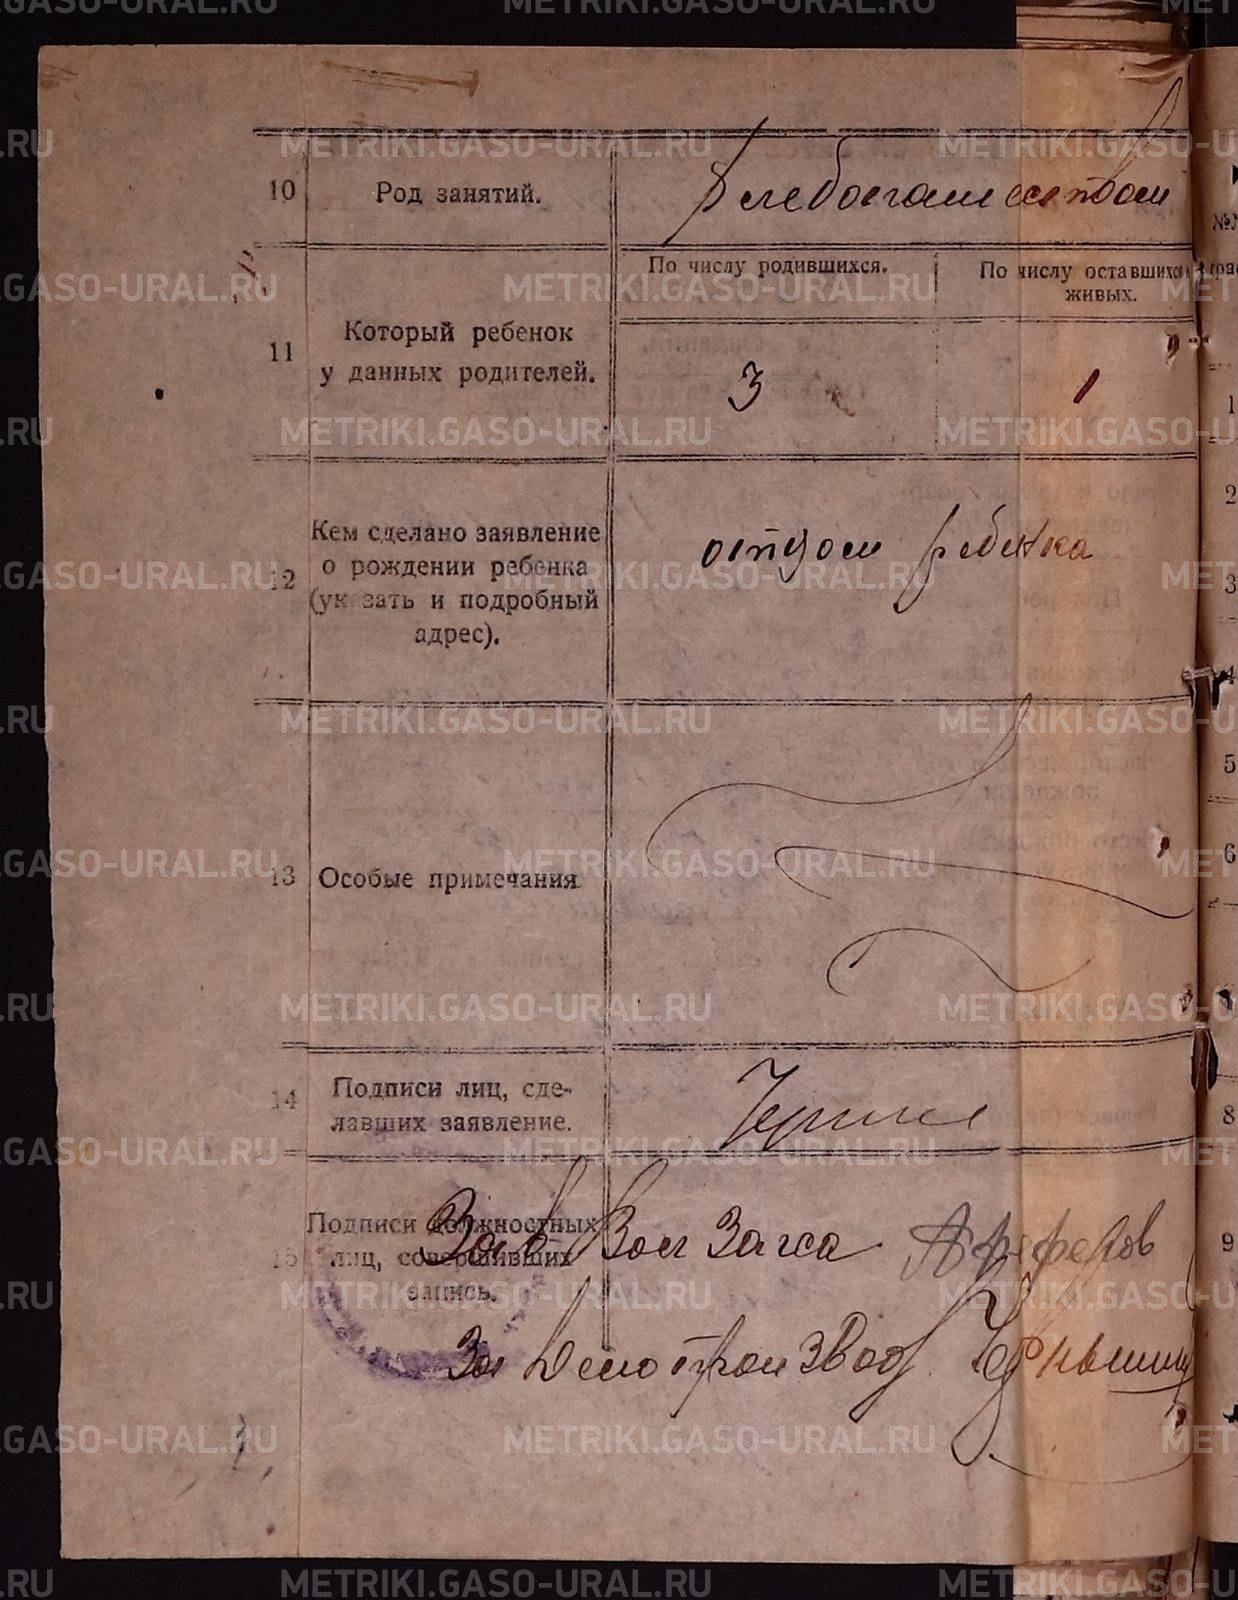 10 Род занятий. Хлебопашеством
По числу родившихся. По числу оставшихся живых.
11 Который ребенок
у данных родителей.
3 1
Кем сделано заявление
о рождении ребенка
12 (указать и подробный
адрес).
отцом ребенка
13 Особые примечания
14 Подписи лиц, сде-
лавших заявление.
Подписи должностных
15 лиц, совершивших
запись.
Зав Вол Загса
За Делопроизвод.
METRIKI.GASO-URAL.RU